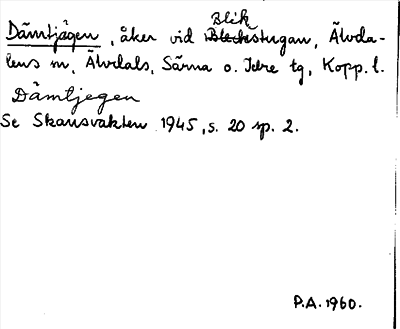 Dämtjägen, åker vid Blik
Bleckstugan, Älvda-
lens m, Älvdals, Särna o. Idre tg, Kopp. l.
Dämtjegen
Se Skansvakten 1945, s. 20 sp. 2.
P.A. 1960.